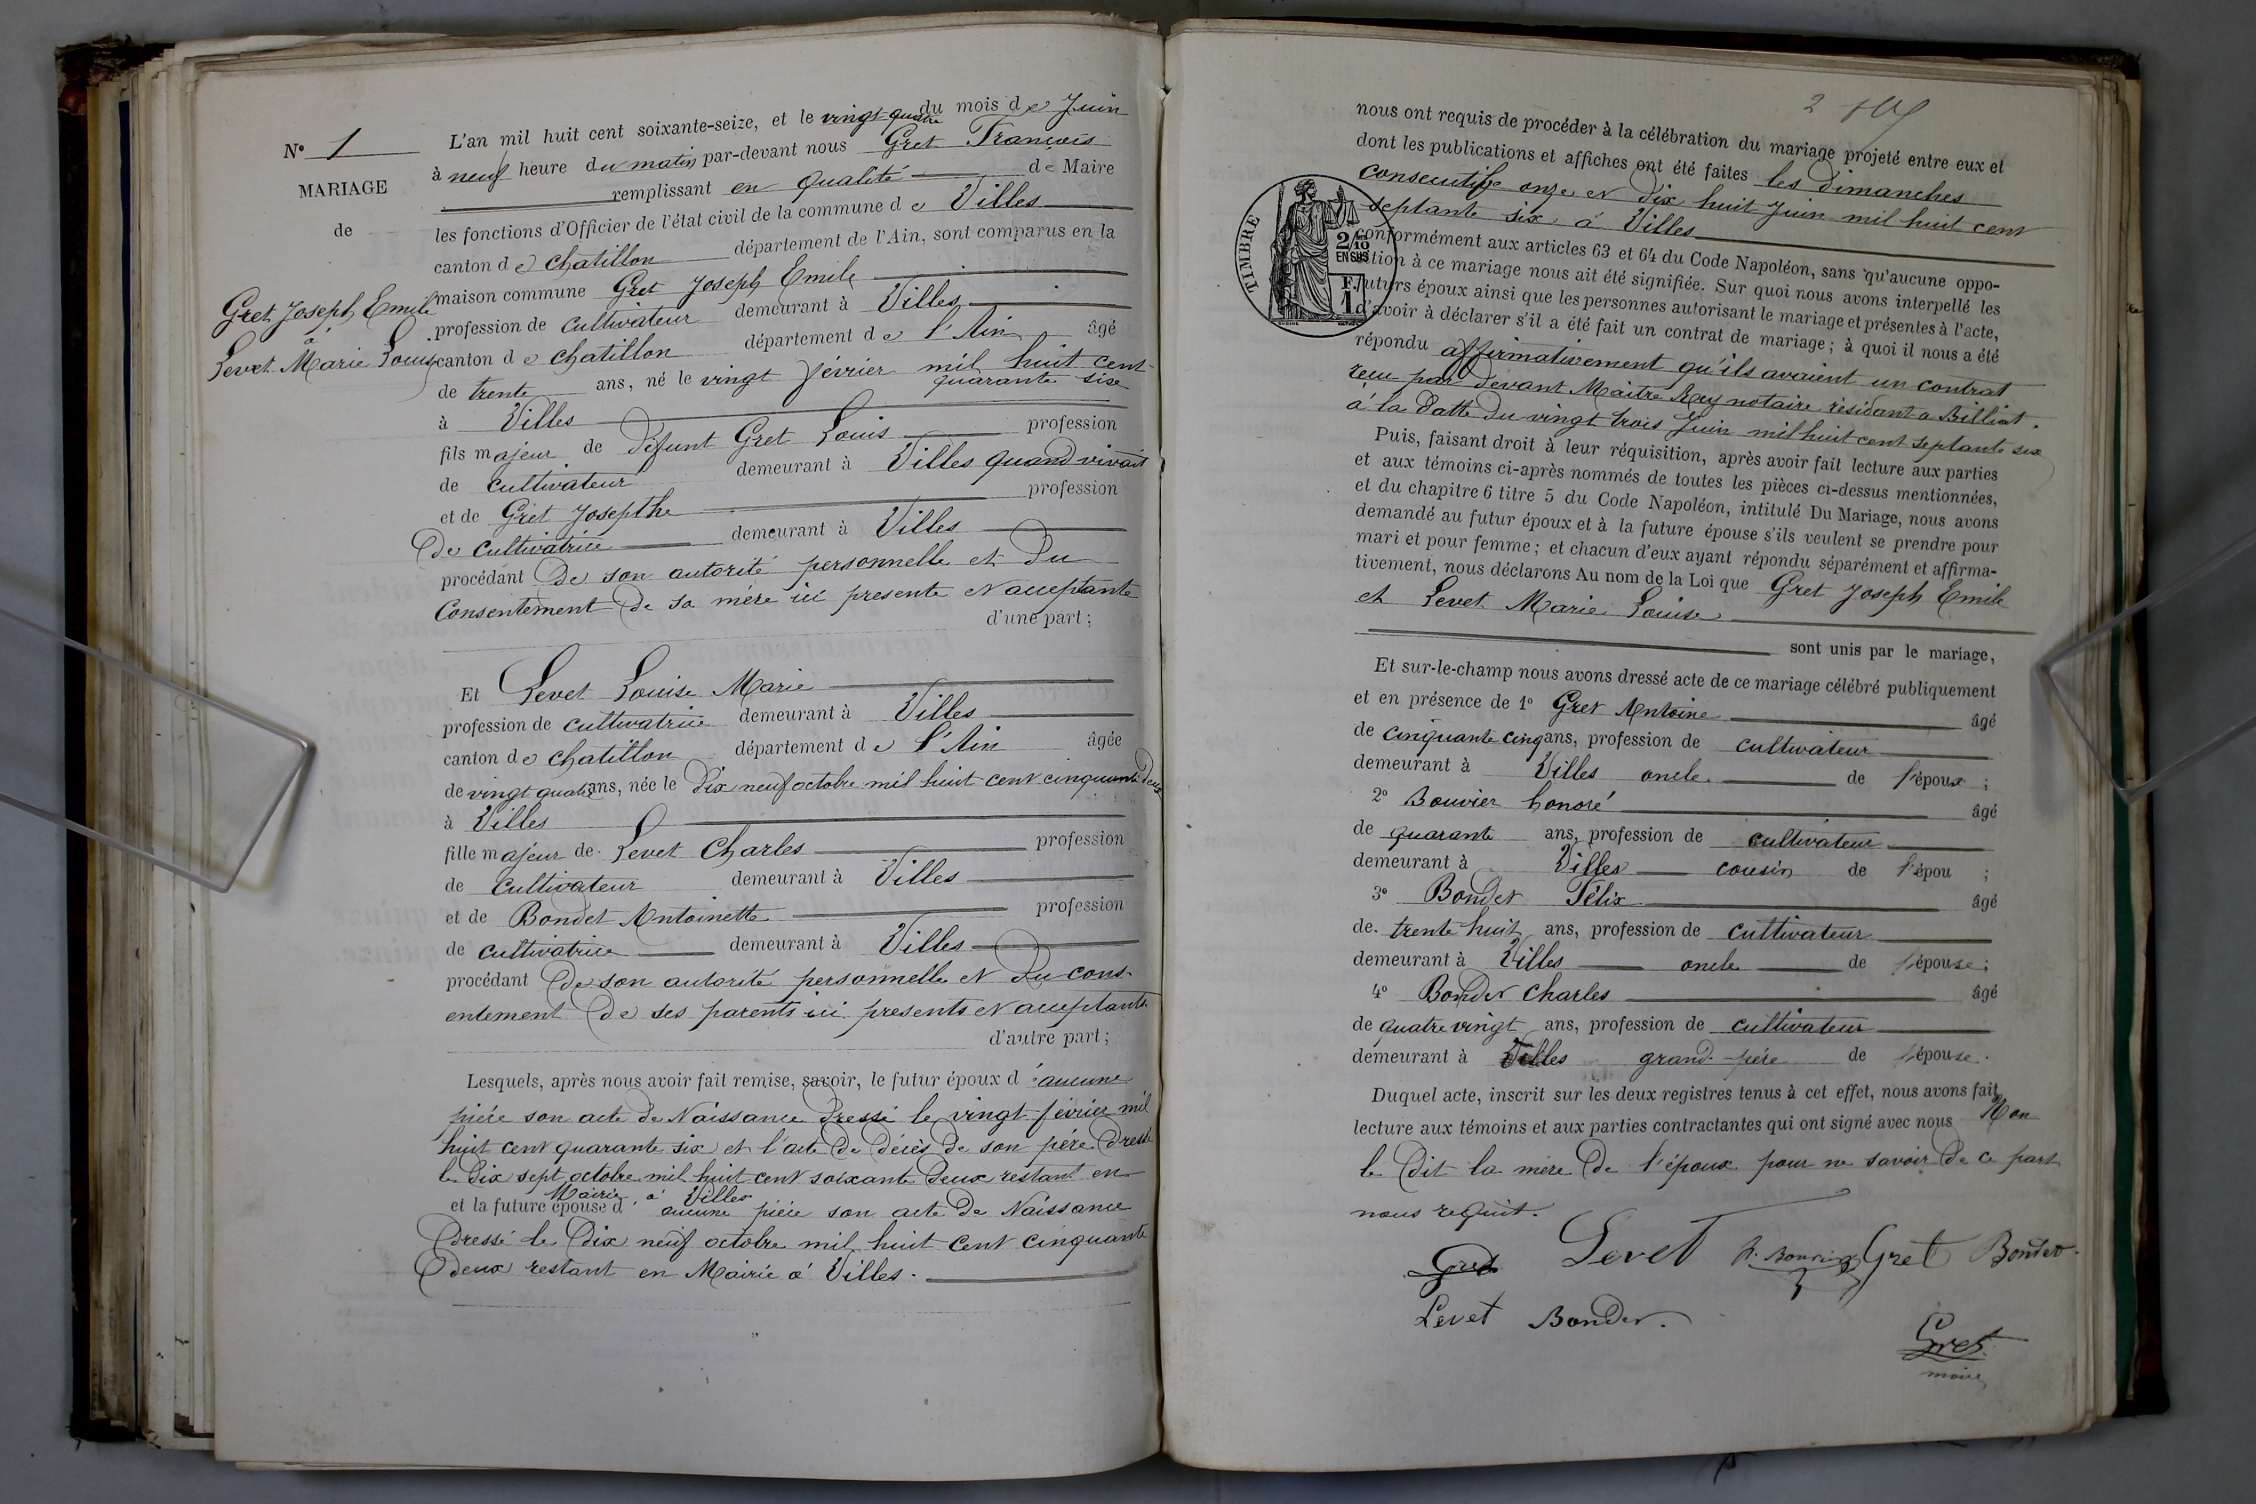 N° 1
MARIAGE
de
Gret Joseph Emile
à
Levet Marie Louise
L'an mil huit cent soixante-seize, et le vingt quatre du mois de Juin
à neuf heure du matin par-devant nous Gret François
remplissant en qualité de Maire
les fonctions d'Officier de l'état civil de la commune de Villes
canton de chatillon département de l'Ain, sont comparus en la
maison commune Gret Joseph Emile
profession de cultivateur demeurant à Villes
canton de chatillon département de l'Ain âgé
de trente ans, né le vingt février mil huit cent
quarante six
à Villes
fils majeur de défunt Gret Louis profession
de cultivateur demeurant à Villes quand vivait
et de Gret Josepthe profession
De cultivatrice demeurant à Villes
procédant De son autorité personnelle et Du
Consentement De sa mère ici presente et acceptante
d'une part;
Et Levet Louise Marie
profession de cultivatrice demeurant à Villes
canton de chatillon département de l'Ain âgée
de vingt quatre ans, née le Dix neuf octobre mil huit cent cinquante deux
à Villes
fille majeur de Levet Charles profession
de cultivateur demeurant à Villes
et de Bondet Antoinette profession
de cultivatrice demeurant à Villes
procédant De son autorité personnelle et Du cons-
entement De ses parents ici presents et acceptants
d'autre part;
Lesquels, après nous avoir fait remise, savoir, le futur époux d'aucune
piéce son acte De Naissance Dressé le vingt février mil
huit cent quarante six et l'acte De Décès De son père Dressé
le Dix sept octobre mil huit cent soixante Deux restant en
Mairie à Villes
et la future épouse d'aucune piéce son acte De Naissance
Dressé le Dix neuf octobre mil huit cent cinquante
Deux restant en Mairie à Villes.
2
nous ont requis de procéder à la célébration du mariage projeté entre eux et
dont les publications et affiches ont été faites les Dimanches
consecutifs onze et Dix huit Juin mil huit cent
septante six à Villes
TIMBRE
2/10
EN SUS
1 F.
conformément aux articles 63 et 64 du Code Napoléon, sans qu'aucune oppo-
sition à ce mariage nous ait été signifiée. Sur quoi nous avons interpellé les
futurs époux ainsi que les personnes autorisant le mariage et présentes à l'acte,
d'avoir à déclarer s'il a été fait un contrat de mariage; à quoi il nous a été
répondu affirmativement qu'ils avaient un contrat
reçu par devant Maitre Rey notaire résidant a Billiat
à la Datte Du vingt trois Juin mil huit cent septante six
Puis, faisant droit à leur réquisition, après avoir fait lecture aux parties
et aux témoins ci-après nommés de toutes les pièces ci-dessus mentionnées,
et du chapitre 6 titre 5 du Code Napoléon, intitulé Du Mariage, nous avons
demandé au futur époux et à la future épouse s'ils veulent se prendre pour
mari et pour femme; et chacun d'eux ayant répondu séparément et affirma-
tivement, nous déclarons Au nom de la Loi que Gret Joseph Emile
et Levet Marie Louise
sont unis par le mariage,
Et sur-le-champ nous avons dressé acte de ce mariage célébré publiquement
et en présence de 1° Gret Antoine âgé
de cinquante cinq ans, profession de cultivateur
demeurant à Villes oncle de l'époux;
2° Bouvier honoré âgé
de quarante ans, profession de cultivateur
demeurant à Villes cousin de l'épou;
3° Bondet Félix âgé
de trente huit ans, profession de cultivateur
demeurant à Villes oncle de l'épouse;
4° Bondet Charles âgé
de quatre vingt ans, profession de cultivateur
demeurant à Villes grand-père de l'épouse.
Duquel acte, inscrit sur les deux registres tenus à cet effet, nous avons fait
lecture aux témoins et aux parties contractantes qui ont signé avec nous Non
le Dit la mère De l'époux pour ne savoir De ce part
nous requit.
Gret Levet h. Bouvier Gret Bondet
Levet Bondet.
Gret
maire